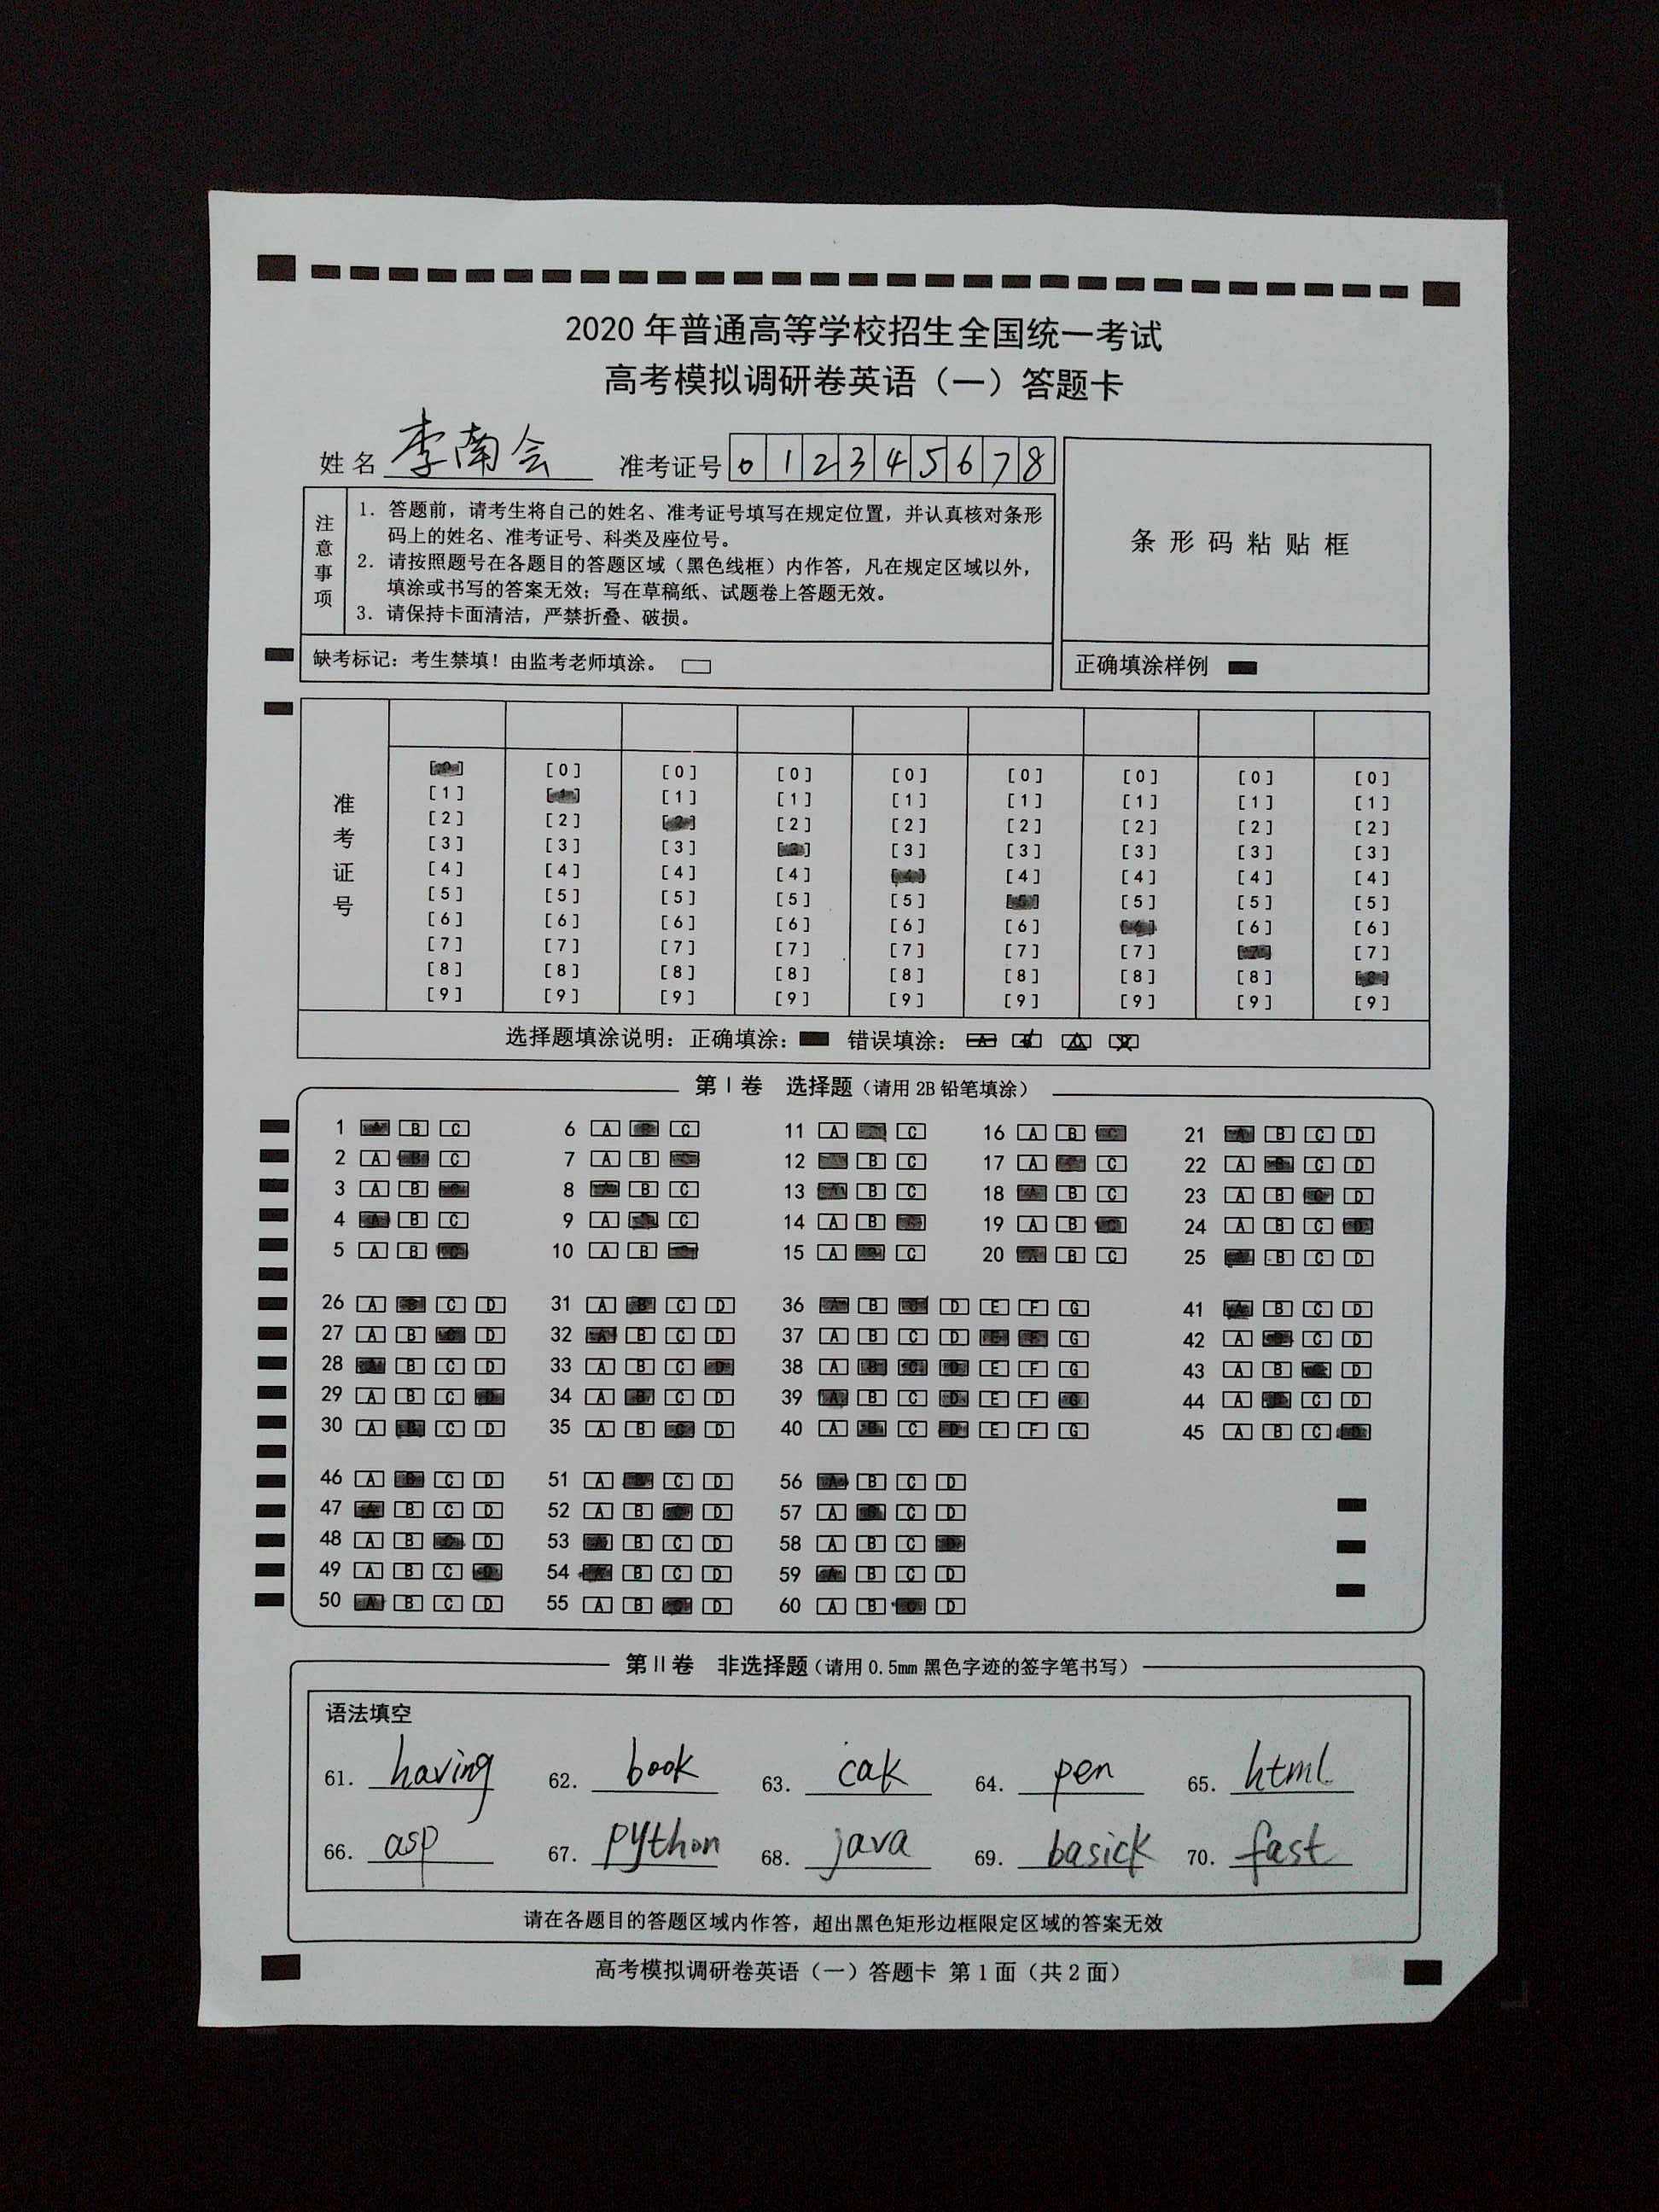 2020 年普通高等学校招生全国统一考试
高考模拟调研卷英语（一）答题卡
姓名 李南会 准考证号 0 1 2 3 4 5 6 7 8
注意事项
1. 答题前，请考生将自己的姓名、准考证号填写在规定位置，并认真核对条形
码上的姓名、准考证号、科类及座位号。
2. 请按照题号在各题目的答题区域（黑色线框）内作答，凡在规定区域以外，
填涂或书写的答案无效；写在草稿纸、试题卷上答题无效。
3. 请保持卡面清洁，严禁折叠、破损。
条形码粘贴框
缺考标记：考生禁填！由监考老师填涂。
正确填涂样例
准考证号
[0] [0] [0] [0] [0] [0] [0] [0] [0]
[1] [1] [1] [1] [1] [1] [1] [1] [1]
[2] [2] [2] [2] [2] [2] [2] [2] [2]
[3] [3] [3] [3] [3] [3] [3] [3] [3]
[4] [4] [4] [4] [4] [4] [4] [4] [4]
[5] [5] [5] [5] [5] [5] [5] [5] [5]
[6] [6] [6] [6] [6] [6] [6] [6] [6]
[7] [7] [7] [7] [7] [7] [7] [7] [7]
[8] [8] [8] [8] [8] [8] [8] [8] [8]
[9] [9] [9] [9] [9] [9] [9] [9] [9]
选择题填涂说明：正确填涂： 错误填涂：
第 I 卷 选择题（请用 2B 铅笔填涂）
1 A B C 6 A B C 11 A C 16 A B C 21 A B C D
2 A B C 7 A B C 12 B C 17 A C 22 A B C D
3 A B C 8 A B C 13 A B C 18 A B C 23 A B C D
4 A B C 9 A B C 14 A B C 19 A B C 24 A B C D
5 A B C 10 A B C 15 A B C 20 A B C 25 A B C D
26 A B C D 31 A B C D 36 A B C D E F G 41 A B C D
27 A B C D 32 A B C D 37 A B C D E F G 42 A B C D
28 A B C D 33 A B C D 38 A B C D E F G 43 A B C D
29 A B C D 34 A B C D 39 A B C D E F G 44 A B C D
30 A B C D 35 A B C D 40 A B C D E F G 45 A B C D
46 A B C D 51 A B C D 56 A B C D
47 A B C D 52 A B C D 57 A B C D
48 A B C D 53 A B C D 58 A B C D
49 A B C D 54 A B C D 59 A B C D
50 A B C D 55 A B C D 60 A B C D
第 II 卷 非选择题（请用 0.5mm 黑色字迹的签字笔书写）
语法填空
61. having 62. book 63. cak 64. pen 65. html
66. asp 67. python 68. java 69. basick 70. fast
请在各题目的答题区域内作答，超出黑色矩形边框限定区域的答案无效
高考模拟调研卷英语（一）答题卡 第 1 面（共 2 面）